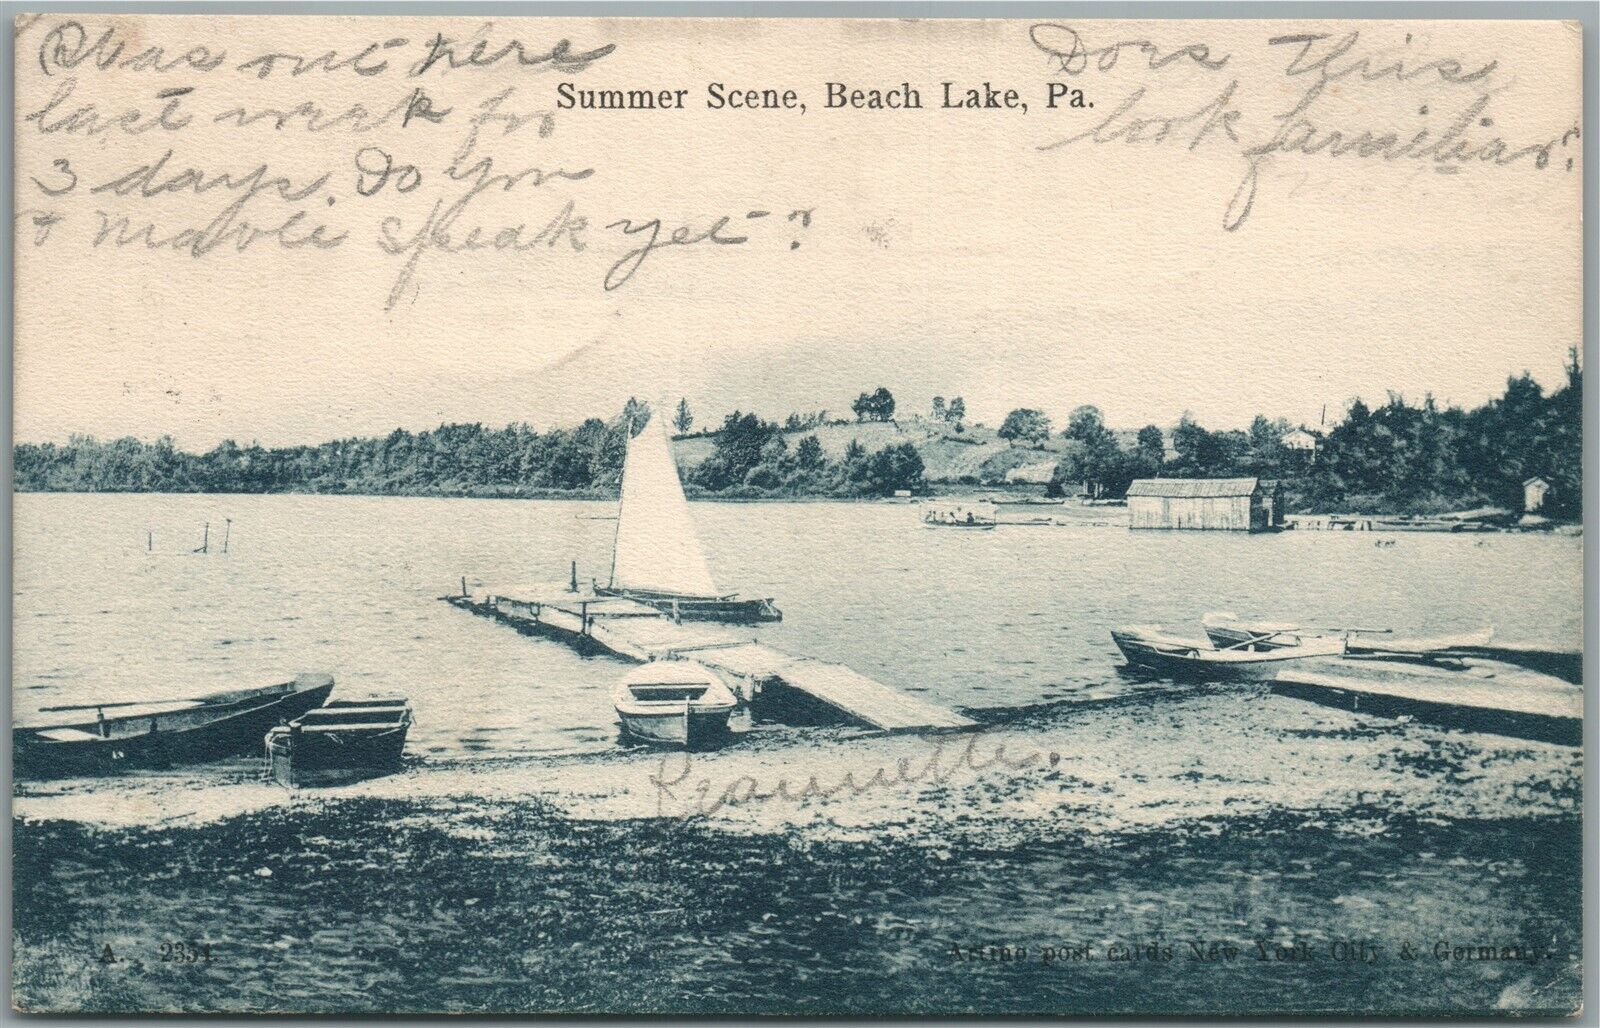 Was out here
last week for
3 days. Do you
& Mable speak yet?
Summer Scene, Beach Lake, Pa.
Does this
look familiar?
Reannette.
A. 2354
Artino post cards New York City & Germany.